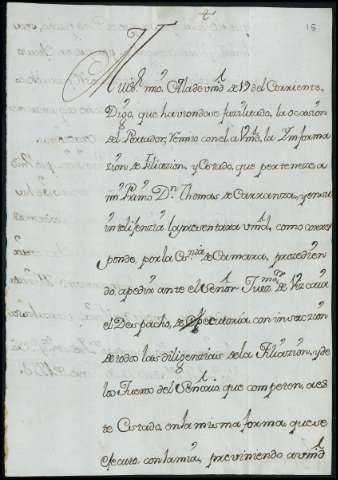 15
Muy Sr. mio, A la de vmd. de 19 del Corriente,
Digo, que haviendose facilitado, la ocasion
del Portador, Remito con el a Vmd. la Informa
zion de Filiazion, y Costado, que pertenece a
mi Primo Dn. Thomas de Carranza, y en su
inteligenzia la presentara vmd. como corres
ponde, por la de Camara, procedien
do a pedir ante el Señor Juez mor. de Vizcaya
el Despacho, de Executoria con inserzion
de todas las diligenzias de la Filiazion, y de
los Fueros del Señorio, que competen, a es
te Costado, en la misma forma, que se
efecuto con la mia, previniendo a vmd.